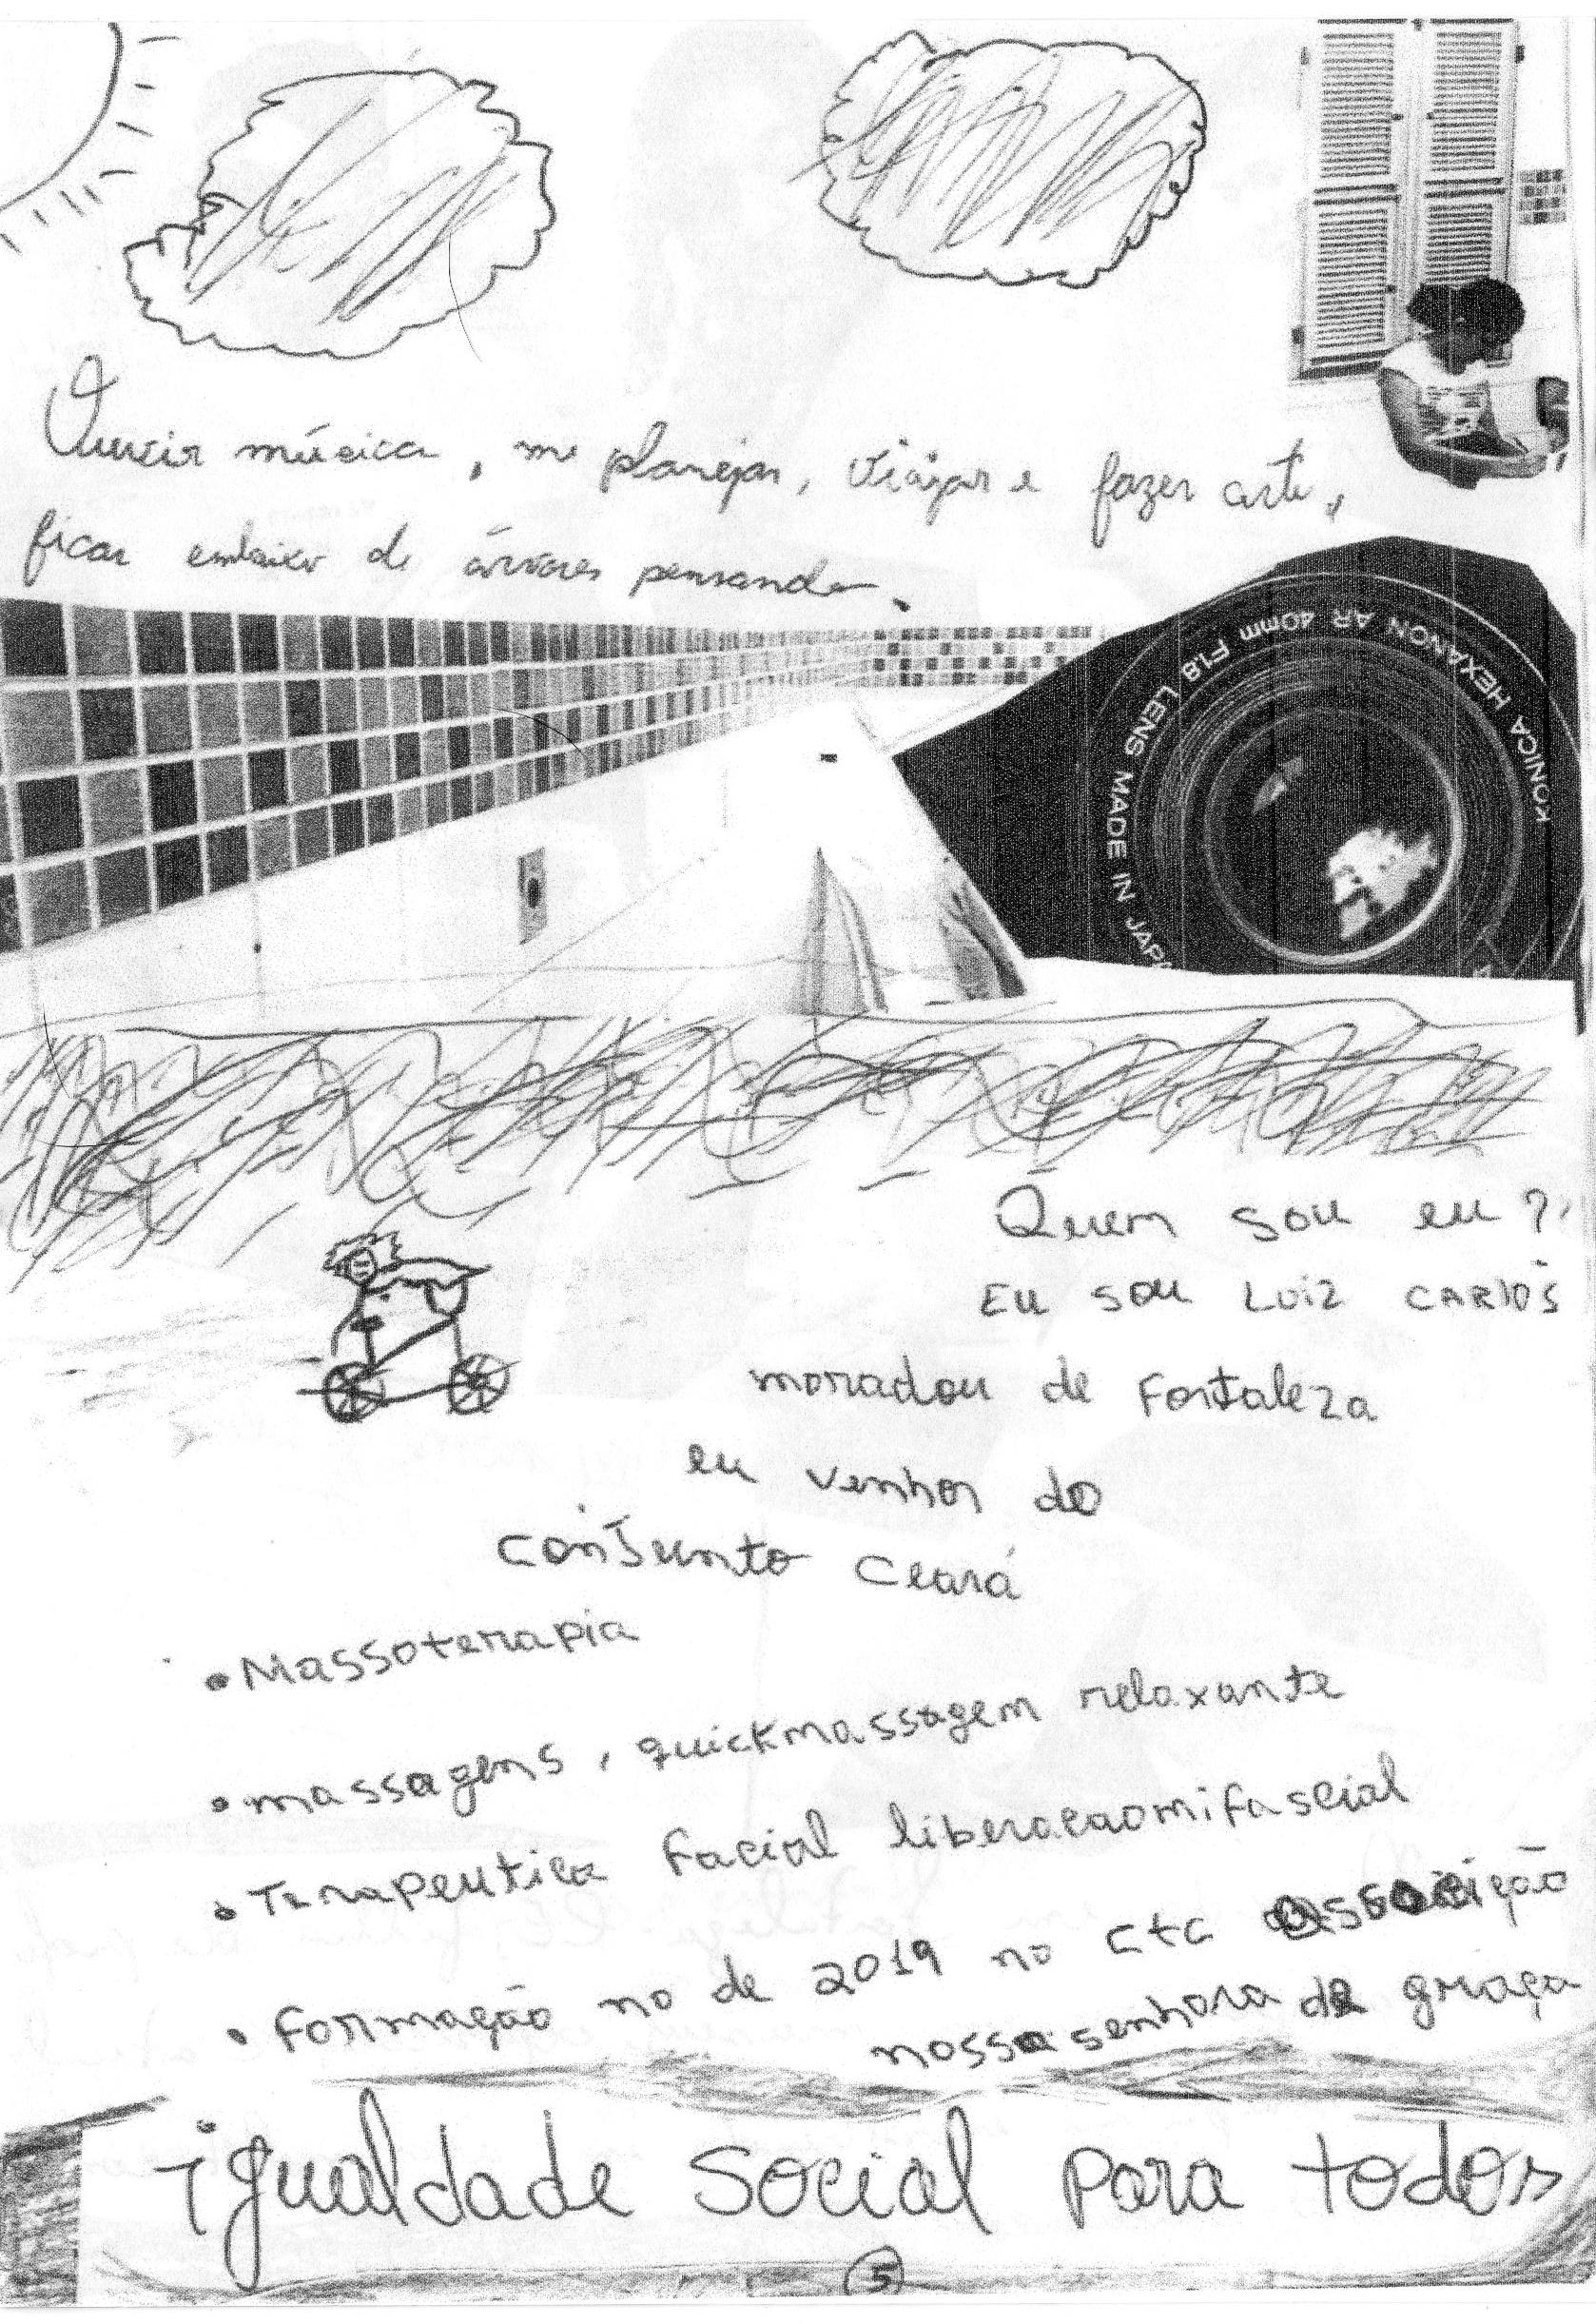 Ouvir música, me planejar, viajar e fazer arte,
ficar embaixo de árvores pensando.
KONICA HEXANON AR 40mm F1.8 LENS MADE IN JAPA
Quem sou eu?
EU SOU LUIZ CARLOS
moradou de Fortaleza
eu venhor do
conJunto Ceará
• Massoterapia
• massagens, quickmassagem relaxante
• Terapeutica Facial liberacaomifascial
• Formação no de 2019 no ctc associção
nossa senhora da graça
igualdade social para todos
5